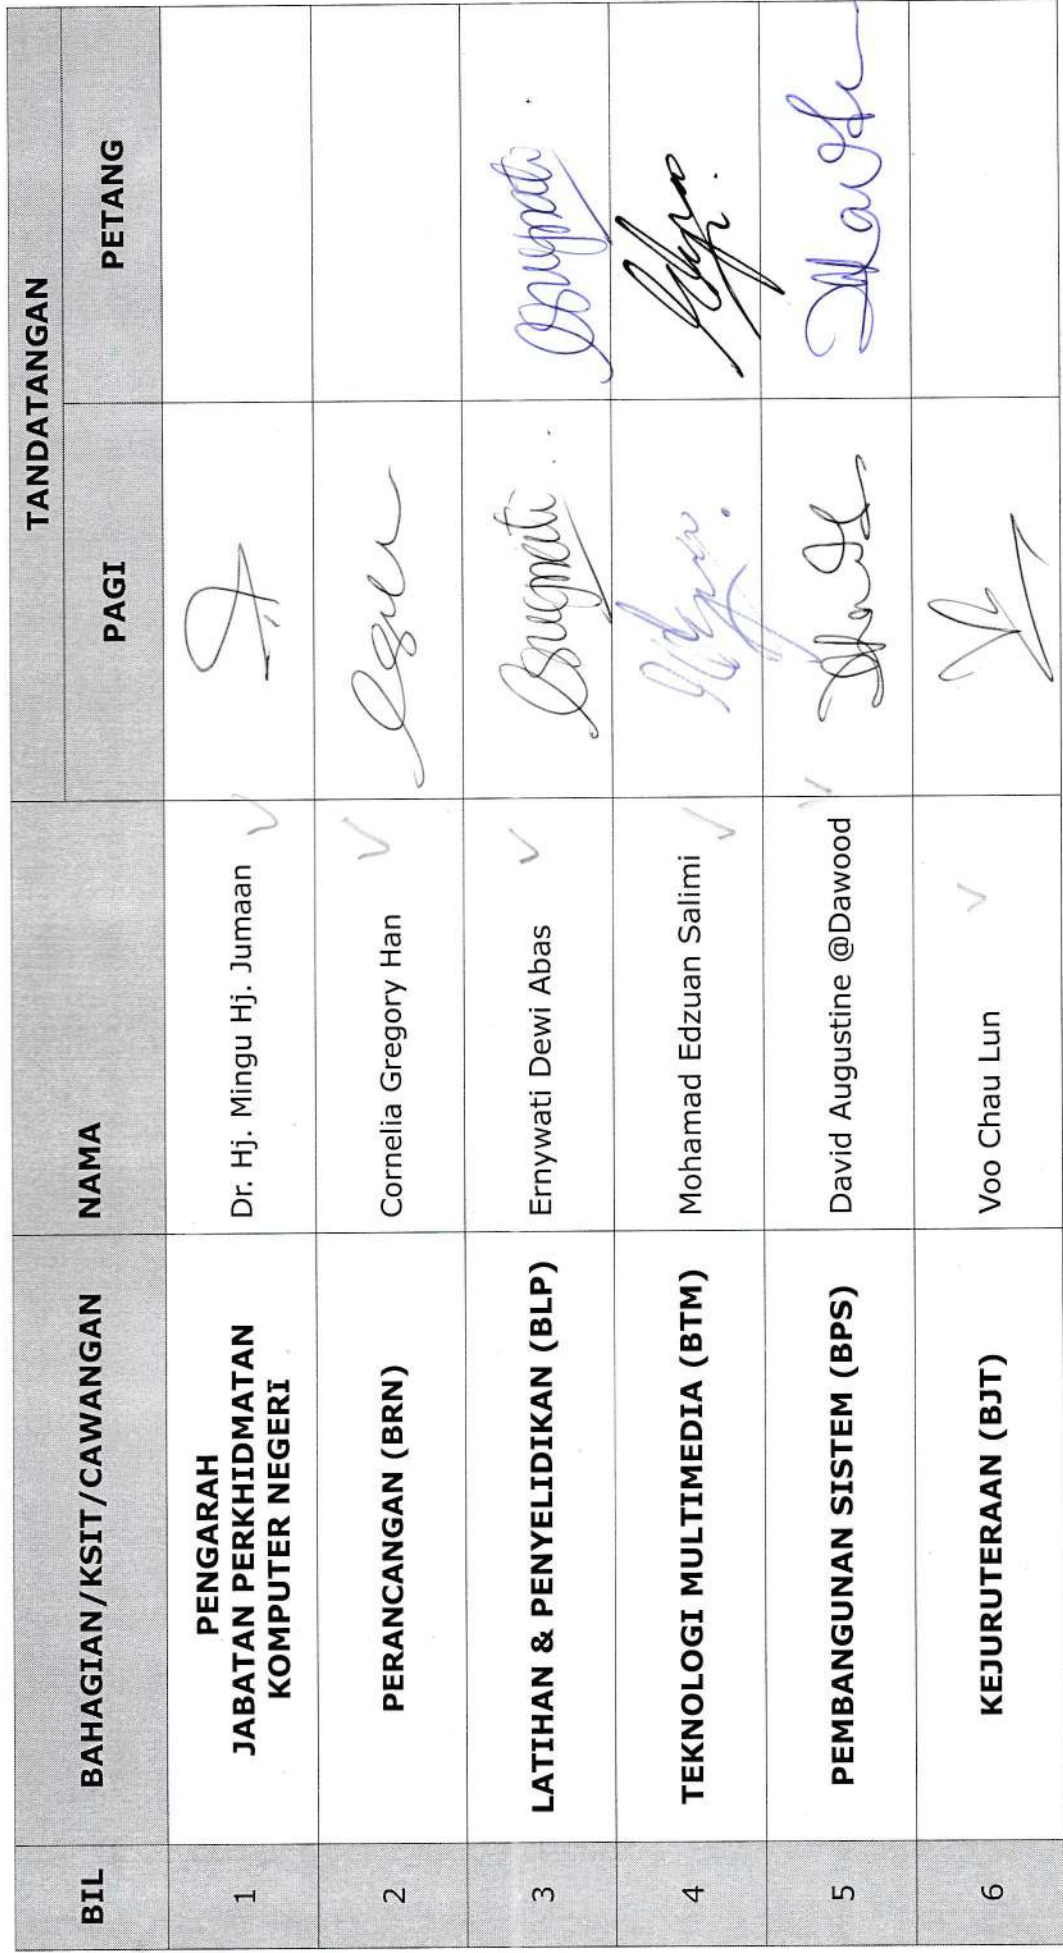 BIL BAHAGIAN/KSIT/CAWANGAN NAMA TANDATANGAN
PAGI PETANG
1 PENGARAH
JABATAN PERKHIDMATAN
KOMPUTER NEGERI
Dr. Hj. Mingu Hj. Jumaan
2 PERANCANGAN (BRN) Cornelia Gregory Han
3 LATIHAN & PENYELIDIKAN (BLP) Ernywati Dewi Abas
4 TEKNOLOGI MULTIMEDIA (BTM) Mohamad Edzuan Salimi
5 PEMBANGUNAN SISTEM (BPS) David Augustine @Dawood
6 KEJURUTERAAN (BJT) Voo Chau Lun